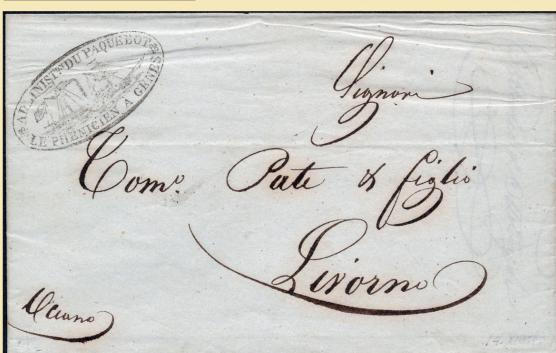 ADMINIST.ᴺ DU PAQUEBOT
LE PHÉNICIEN A GÊNES
Signori
Tomº Pate & figlio
Livorno